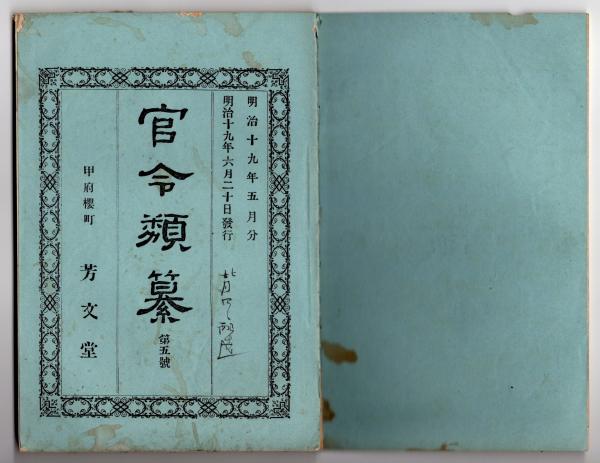 明治十九年五月分
明治十九年六月二十日發行
官令類纂 第五號
甲府櫻町 芳文堂